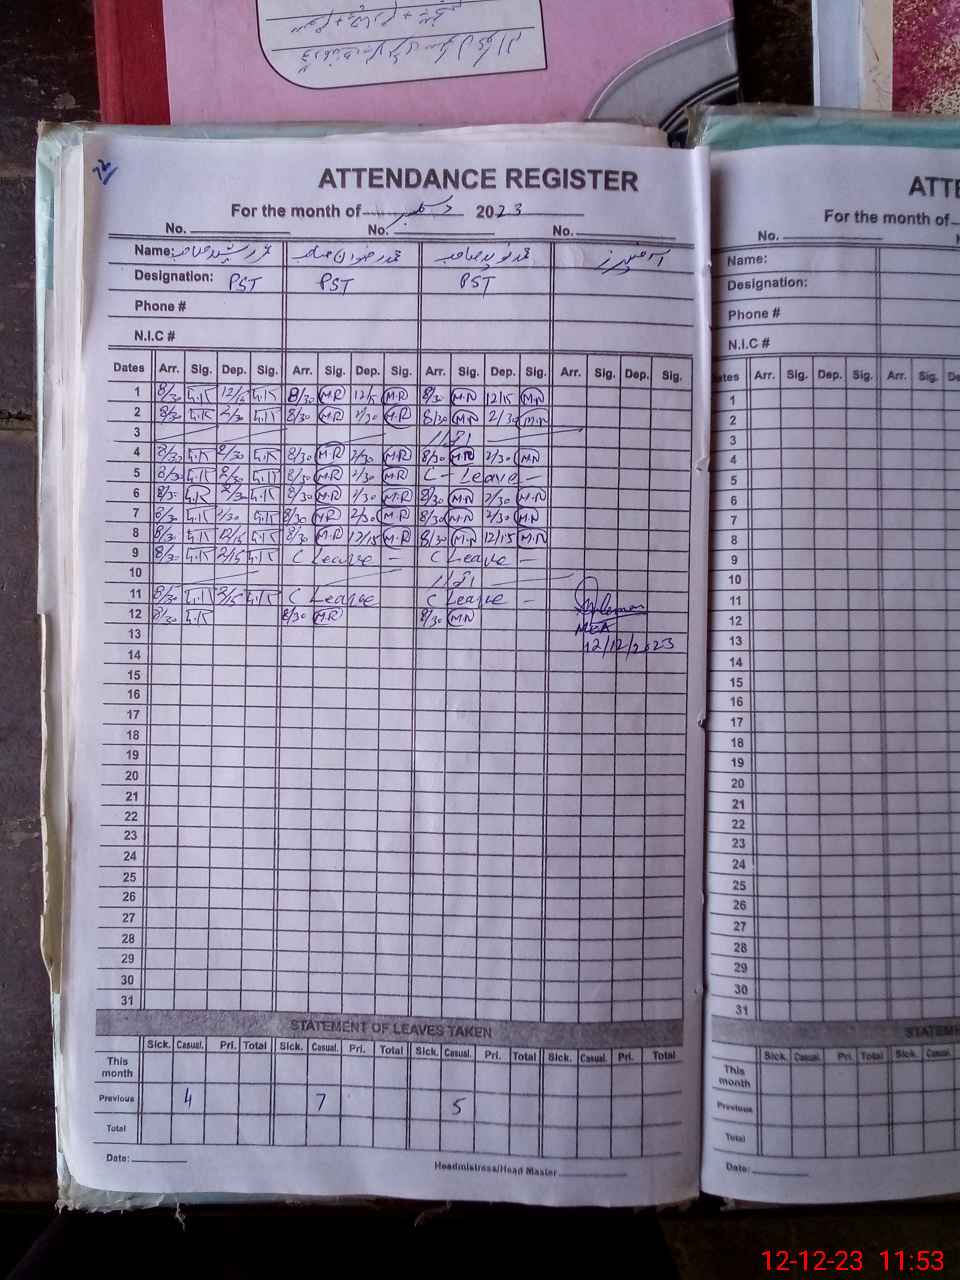 72
ATTENDANCE REGISTER
For the month of دسمبر 2023
No. No. No.
Name: محمد رضوان صاحب محمد نوید صاحب آفیسرز
Designation: PST PST PST
Phone #
N.I.C #
Dates Arr. Sig. Dep. Sig. Arr. Sig. Dep. Sig. Arr. Sig. Dep. Sig. Arr. Sig. Dep. Sig.
1 8/30 12/15 8/30 M.R 12/15 M.R 8/30 M.N 12/15 M.N
2 8/30 2/30 8/30 M.R 2/30 M.R 8/30 M.N 2/30 M.N
3 اتوار
4 8/30 2/30 8/30 M.R 2/30 M.R 8/30 M.N 2/30 M.N
5 8/30 2/30 8/30 M.R 2/30 M.R C - Leave -
6 8/30 2/30 8/30 M.R 2/30 M.R 8/30 M.N 2/30 M.N
7 8/30 2/30 8/30 M.R 2/30 M.R 8/30 M.N 2/30 M.N
8 8/30 12/15 8/30 M.R 12/15 M.R 8/30 M.N 12/15 M.N
9 8/30 2/15 C Leave - C Leave -
10 اتوار
11 8/30 C Leave C Leave -
12 8/30 8/30 M.R 8/30 M.N
MEA
13 12/12/2023
14
15
16
17
18
19
20
21
22
23
24
25
26
27
28
29
30
31
STATEMENT OF LEAVES TAKEN
Sick. Casual. Pri. Total Sick. Casual. Pri. Total Sick. Casual. Pri. Total Sick. Casual. Pri. Total
This month
Previous 4 7 5
Total
Date:
Headmistress/Head Master
ATTE
For the month of
No. No.
Name:
Designation:
Phone #
N.I.C #
Dates Arr. Sig. Dep. Sig. Arr. Sig. De
1
2
3
4
5
6
7
8
9
10
11
12
13
14
15
16
17
18
19
20
21
22
23
24
25
26
27
28
29
30
31
STATEME
Sick. Casual. Pri. Total Sick. Casual.
This month
Previous
Total
Date:
12-12-23 11:53